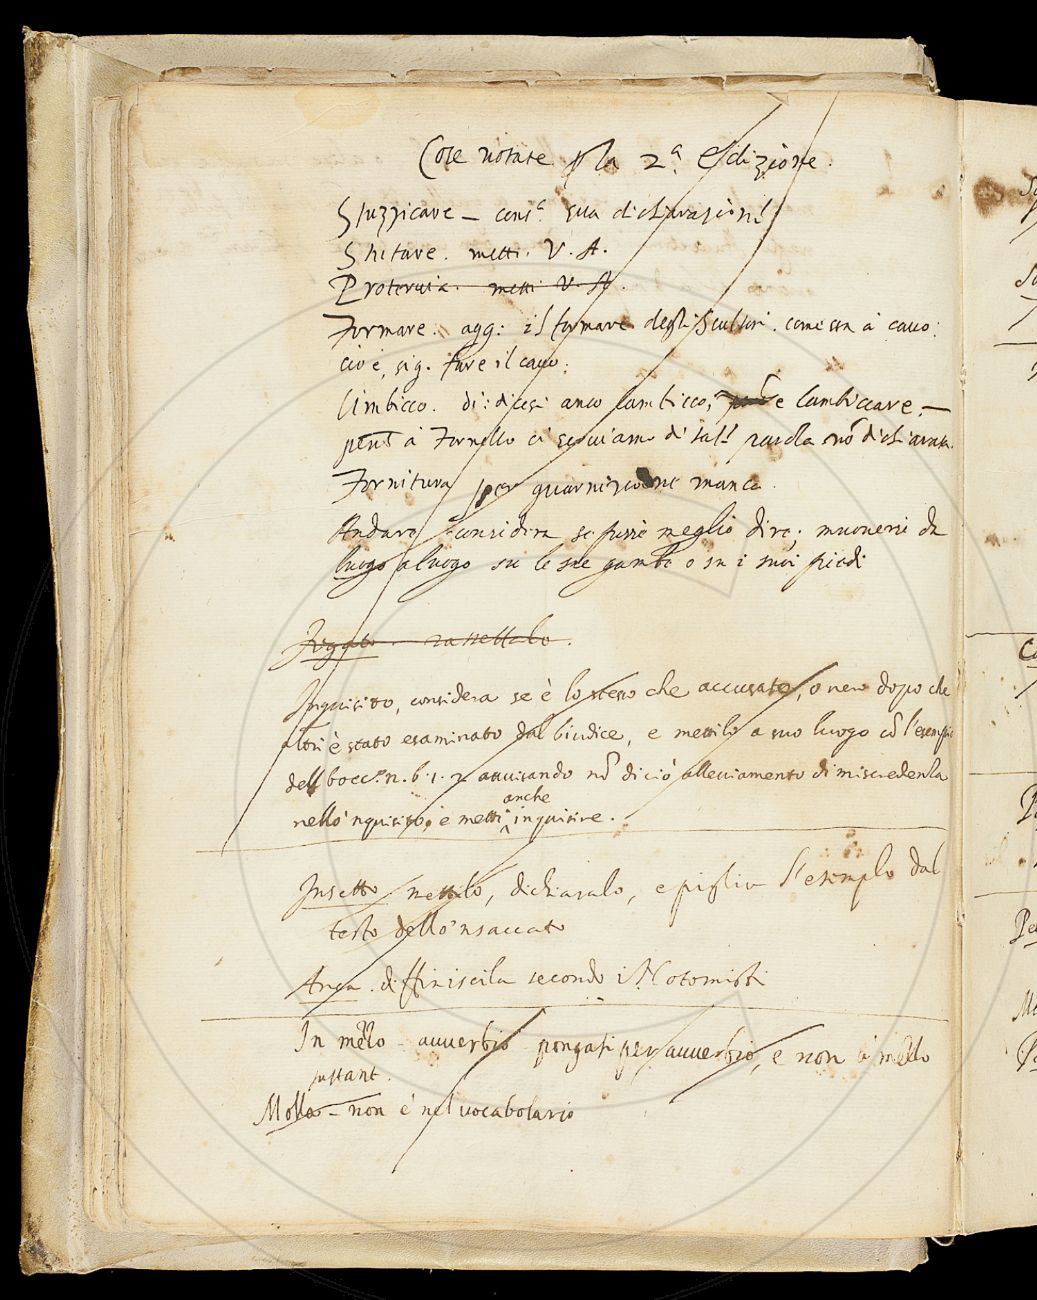 Cose notate p la 2ª Edizione.
Stuzzicare – consª. sua dichiarazione
metti. V. A.
Proteruia. metti V. A.
Formare. agg: il formare degli Scultori. come sta à cauo:
cioè, sig. fare il cauo:
Limbicco. di: dicesi anco lambicco, e lambiccare, –
à Fornello ci seruiamo di tal parola nō dichiarata.
Fornitura per guarnizione manca.
Andare considera se fusse meglio dire, muouersi da
luogo a luogo su le sue gambe o su i suoi piedi
Fogato. rassettalo.
Inquisito, considera se è lo stesso che accusato, o uero dopo che
altri è stato esaminato dal Giudice, e mettilo a suo luogo cō l'esempio
dell bocc. n. 6. 1. 2 auuisando nō di ciò alleuiamento di miscredenza
anche
nello 'nquisito, e metti inquisire.
Insetto mettilo, dichiaralo, e piglia l'esemplo dal
testo dello 'nsaccato
diffiniscila secondo i Notomisti
In mezzo – auuerbio pongasi per auuerbio, e non à mezzo
sustant.
Molla – non è nel uocabolario